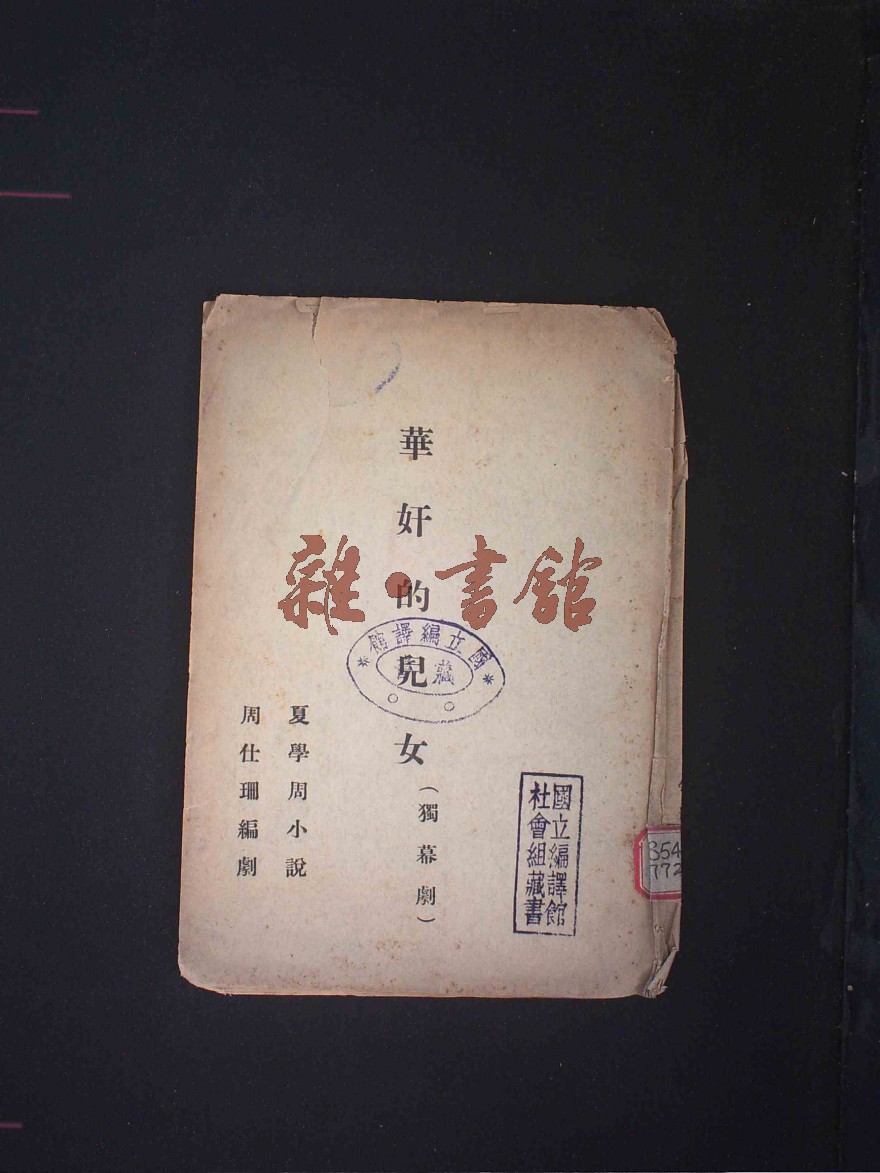 華奸的兒女
(獨幕劇)
夏學周小說
周仕珊編劇
雜·書館
國立編譯館
藏
國立編譯館
社會組藏書
354
772